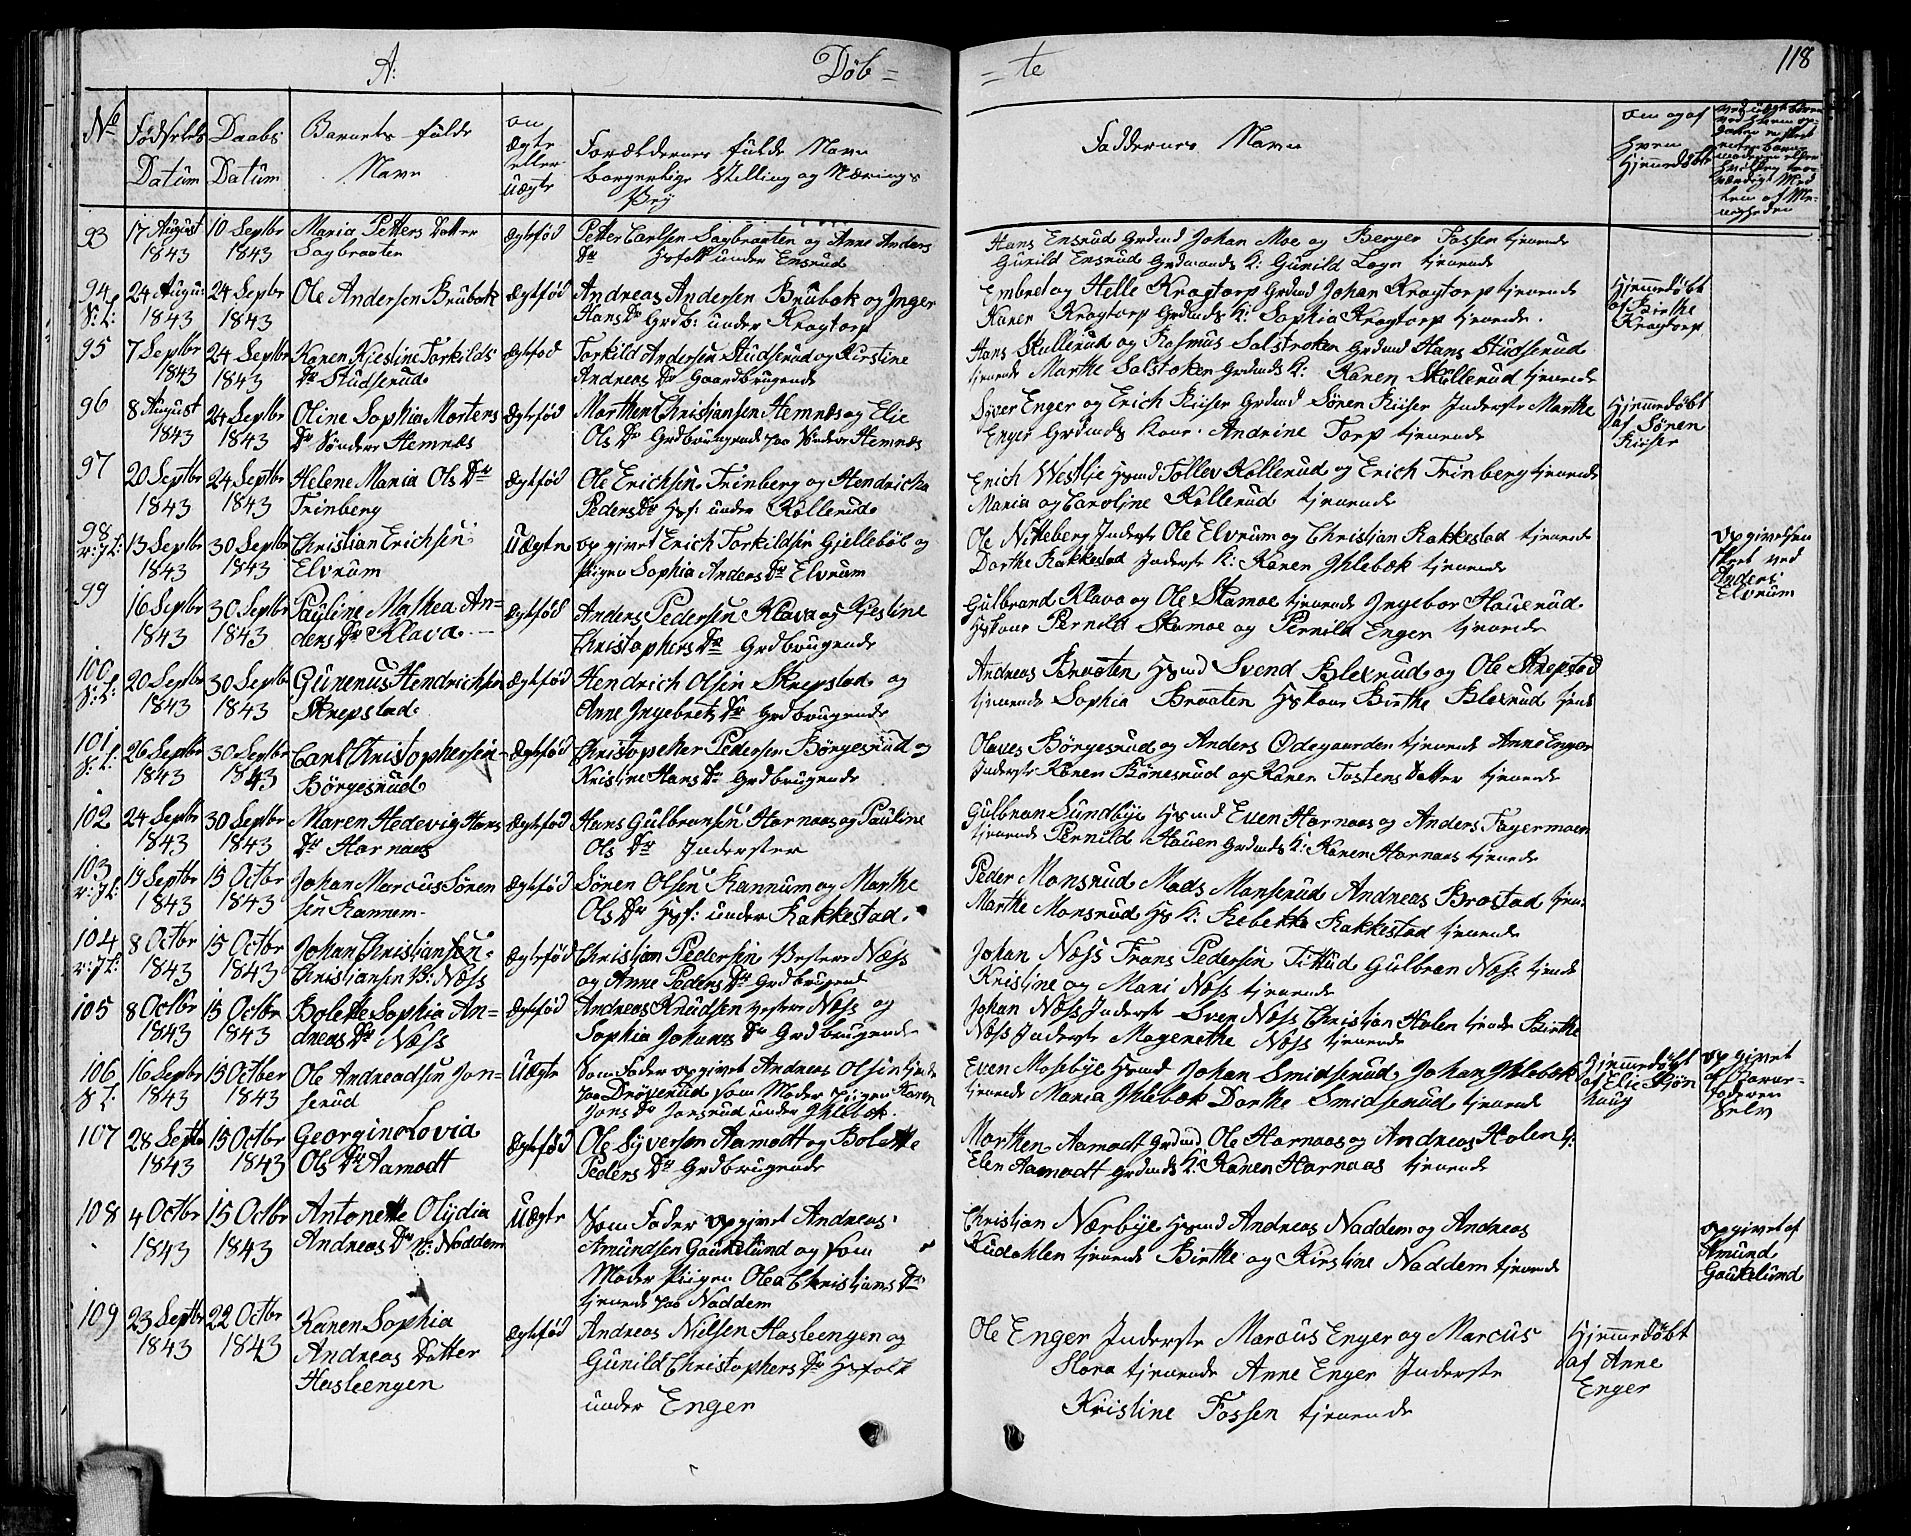 118
A: Döb= =te
No
Födsels Datum
Daabs Datum
Barnets fulde Navn
om ægte eller uægte
Forældrenes fulde Navn borgerlige Stilling og Nærings Vej
Faddernes Navn
om og af hvem hjemedöbt
93 17 August 1843 10 Septbr 1843 Maria Petters Datter Sagbraaten ægtefød Petter Carlsen Sagbraaten og Anne Anders Dr Hsfolk under Ensrud
Hans Ensrud Grdmd Johan Moe og Berger Fossen tjenende
Gunild Ensrud Grdmands K: Gunild tjenende
94 S:L: 24 Augu: 1843 24 Sepbr 1843 Ole Andersen Brubak ægtfød Andreas Andersen Brubak og Inger Hans Dr Grdb: under Krogtorp
Embret og Helle Krogtorp Grdmd Johan Krogtorp tjenende
Karen Krogtorp Grdmds K: Sophia Krogtorp tjenende.
Hjemmedöbt af Birthe Krogtorp
95 7 Septbr 1843 24 Septbr 1843 Karen Kiestine Torkilds Dr Studserud ægtefod Torkild Andersen Studserud og Kirstine Andreas Dr Gaardbrugende
Hans Skullerud og Rasmus Solstroken Grdmd Hans Studserud
tjenende Marthe Solstoken Grdmds K: Karen Skullerud tjenende
96 8 August 1843 24 Septbr 1843 Oline Sophia Mortens Dr Söndre Hemnæs ægtefød Morthen Christjansen Hemnæs og Elie Ols Dr Grdbrugende paa Söndre Hemnæs
Syver Enger og Erich Kiiser Grdmd Sören Kiiser Inderste Marthe
Enger Grdmds Kone. Andrine Torp tjenende
Hjemmedöbt af Sören Kiiser
97 20 Septbr 1843 24 Septbr 1843 Helene Maria Ols Dr Trinberg ægtefød Ole Erichsen Trinberg og Hendricha Peders Dr Hsf: under Kollerud
Erich Westlje Hsmd Tollev Kollerud og Erich Trinberg tjenende
Maria og Caroline Kollerud tjenende
98 13 Septbr 1843 30 Septbr 1843 Christian Erichsen Elvrum Uægte opgivet Erich Torkildsen Gjelleböl og Pigen Sophia Andreas Dr Elvrum
Ole Nitteberg Inderste Ole Elvrum og Christjan Kakkestad tjenende
Dorthe Kakkestad Inderste K: Karen Ihlebæk tjenende
opgivelsen skeet ved Anders Elvrum
99 16 Septbr 1843 30 Septbr 1843 Pauline Mathea Anders Dr Klava ægtefød Anders Pedersen Klava og Kjestine Christophers Dr Grdbrugende
Gulbrand Klava og Ole Skamoe tjenende Ingebor Haverud
Hskone Pernild Skamoe og Pernild Enger tjenende
100 S:L: 20 Septbr 1843 30 Septbr 1843 Gunerius Hendrichsen Skrepstad ægtefød Hendrich Olsen Skrepstad og Anne Ingebrets Dr Grdbrugende
Andreas Braaten Hsmd Svend Blexrud og Ole Skrepstad
tjenende Sophia Braaten Hskone Birthe Blexrud tjend
101 S:L: 26 Septbr 1843 30 Septbr 1843 Carl Christophersen Börgesrud ægtefød Christopehar Pedersen Börgesrud og Kristine Hans Dr Grdbrugende
Olaves Börgesrud og Anders Ödegaarden tjenende Anne Enger
Inderste Karen Bönesrud og Karen Tostens Datter tjenende
102 24 Septbr 1843 30 Septbr 1843 Maren Hedevig Hans Dr Harnaas ægtefød Hans Gulbransen Harnaas og Pauline Ols Dr Inderster
Gulbran Sundbye Hsmd Even Harnaas og Anders Fagermoen
tjenende Pernild Hauen Grdmds K: Karen Harnaas tjenende
103 19 Septbr 1843 15 Octbr 1843 Johan Marcus Sörensen Kannem ægtefød Sören Olsen Kannum og Marthe Ols Dr Hsf: under Kakkestad.
Peder Monsrud Mads Monserud Andreas Brostad tjen:
Marthe Monsrud Hs K: Rebekka Kakkestad tjenende
104 8 Octbr 1843 15 Octbr 1843 Johan Christiansen Christiansen V: Næss ægtefød Christjan Pedersen Vestere Næss og Anne Peders Dr Grdbrugend
Johan Næss Frans Pedersen Tittud Gulbran Næss tjende
Kristine og Mari Næss tjenende
105 8 Octbr 1843 15 Octbr 1843 Bolette Sophia Andreas Dr Næss ægtefød Andreas Knudsen vestere Næss og Sophia Johanes Dr Grdbrugende
Johan Næss Inderste Sven Næss Christjan Holen tjende Birthe
Næss Inderste Magerethe Næss tjenende
106 S:L: 16 Septbr 1843 15 October 1843 Ole Andreadsen Jonserud Uægte Som Fader opgivet Andreas Olsen tjende paa Dröverud som Moder Pigen Karen Jons Dr Jonsrud under Ihlebæk.
Even Mosebye Hsmd Johan Smidserud Johan Ihlebæk
tjenende Maria Ihlebæk Dorthe Smidserud tjenende
Hjemmedöbt af Elie Björnhaug
opgivet af Barnefaderen selv
107 28 Septb 1843 15 Octbr 1843 Georgine Lovia Ols Dr Aamodt ægtefød Ole Syversen Aamodt og Bolette Peders Dr Grdbrugende
Morthen Aamodt Grdmd Ole Harnaas og Andreas Holen tj:
Elen Aamodt Grdmds K: Karen Harnaas tjenende
108 4 Octbr 1843 15 Octbr 1843 Antonette Olydia Andreas Dr N: Naddem Uægte Som Fader opgivet Andreas Amundsen Gaukelund og som Moder Pigen Olea Christjans Dr tjenende paa Naddem
Christjan Nærbye Hsmd Andreas Naddem og Andreas
Kudahlen tjenende Birthe og Kirstine Naddem tjenende
opgivet af Amund Gaukelund
109 23 Septbr 1843 22 Octbr 1843 Karen Sophia Andreas Datter Hasleengen ægtefød Andreas Nielsen Hasleengen og Gunild Christophers Dr Hsfolk under Enger
Ole Enger Inderste Marcus Enger og Marcus
Slora tjenende Anne Enger Inderste
Kristine Fossen tjenende
Hjemmedöbt af Anne Enger